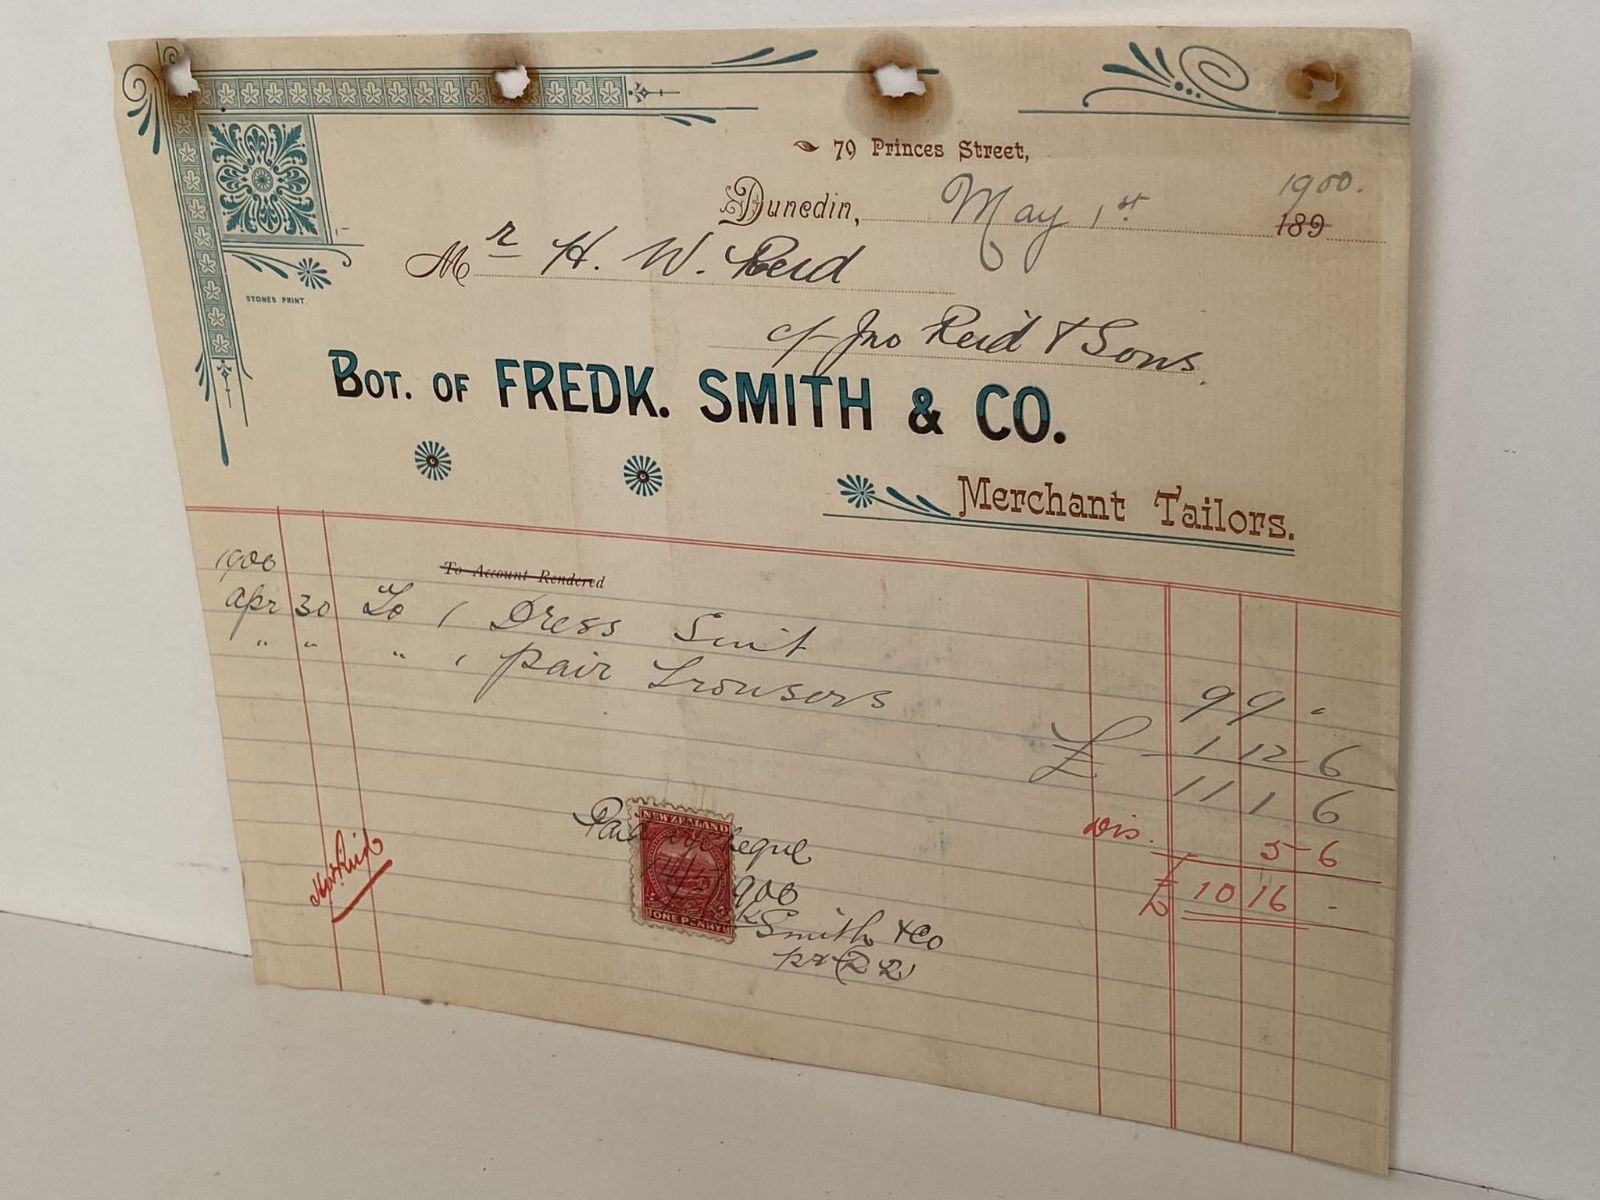 79 Princes Street,
Dunedin, May 1st 1900. 189
Mr H. W. Reid
c/- Jno Reid & Sons.
STONES PRINT.
BOT. OF FREDK. SMITH & CO.
Merchant Tailors.
1900 To Account Rendered
Apr 30 To 1 Dress Suit 9 9 -
" " " 1 pair Trousers 1 12 6
£ 11 1 6
Dis. 5-6
£ 10 16 -
NEW ZEALAND
ONE PENNY
Paid cheque
1900
Smith & Co
pr